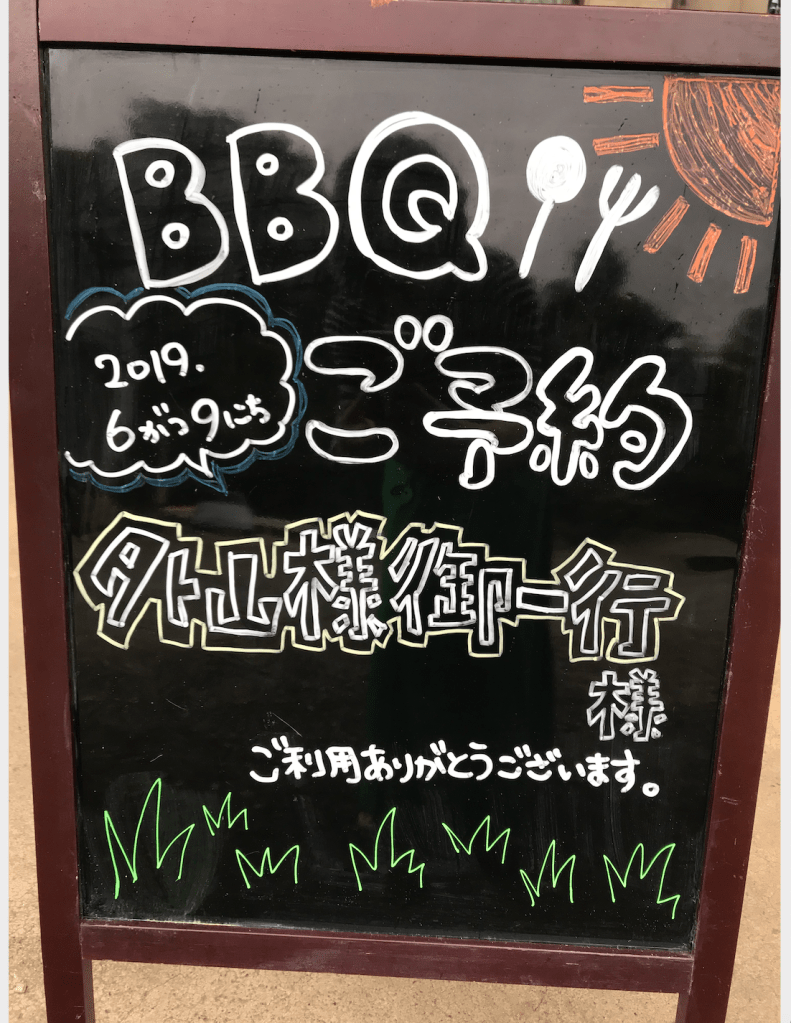 BBQ
2019.
6がつ9にち
ご予約
外山様御一行
様
ご利用ありがとうございます。